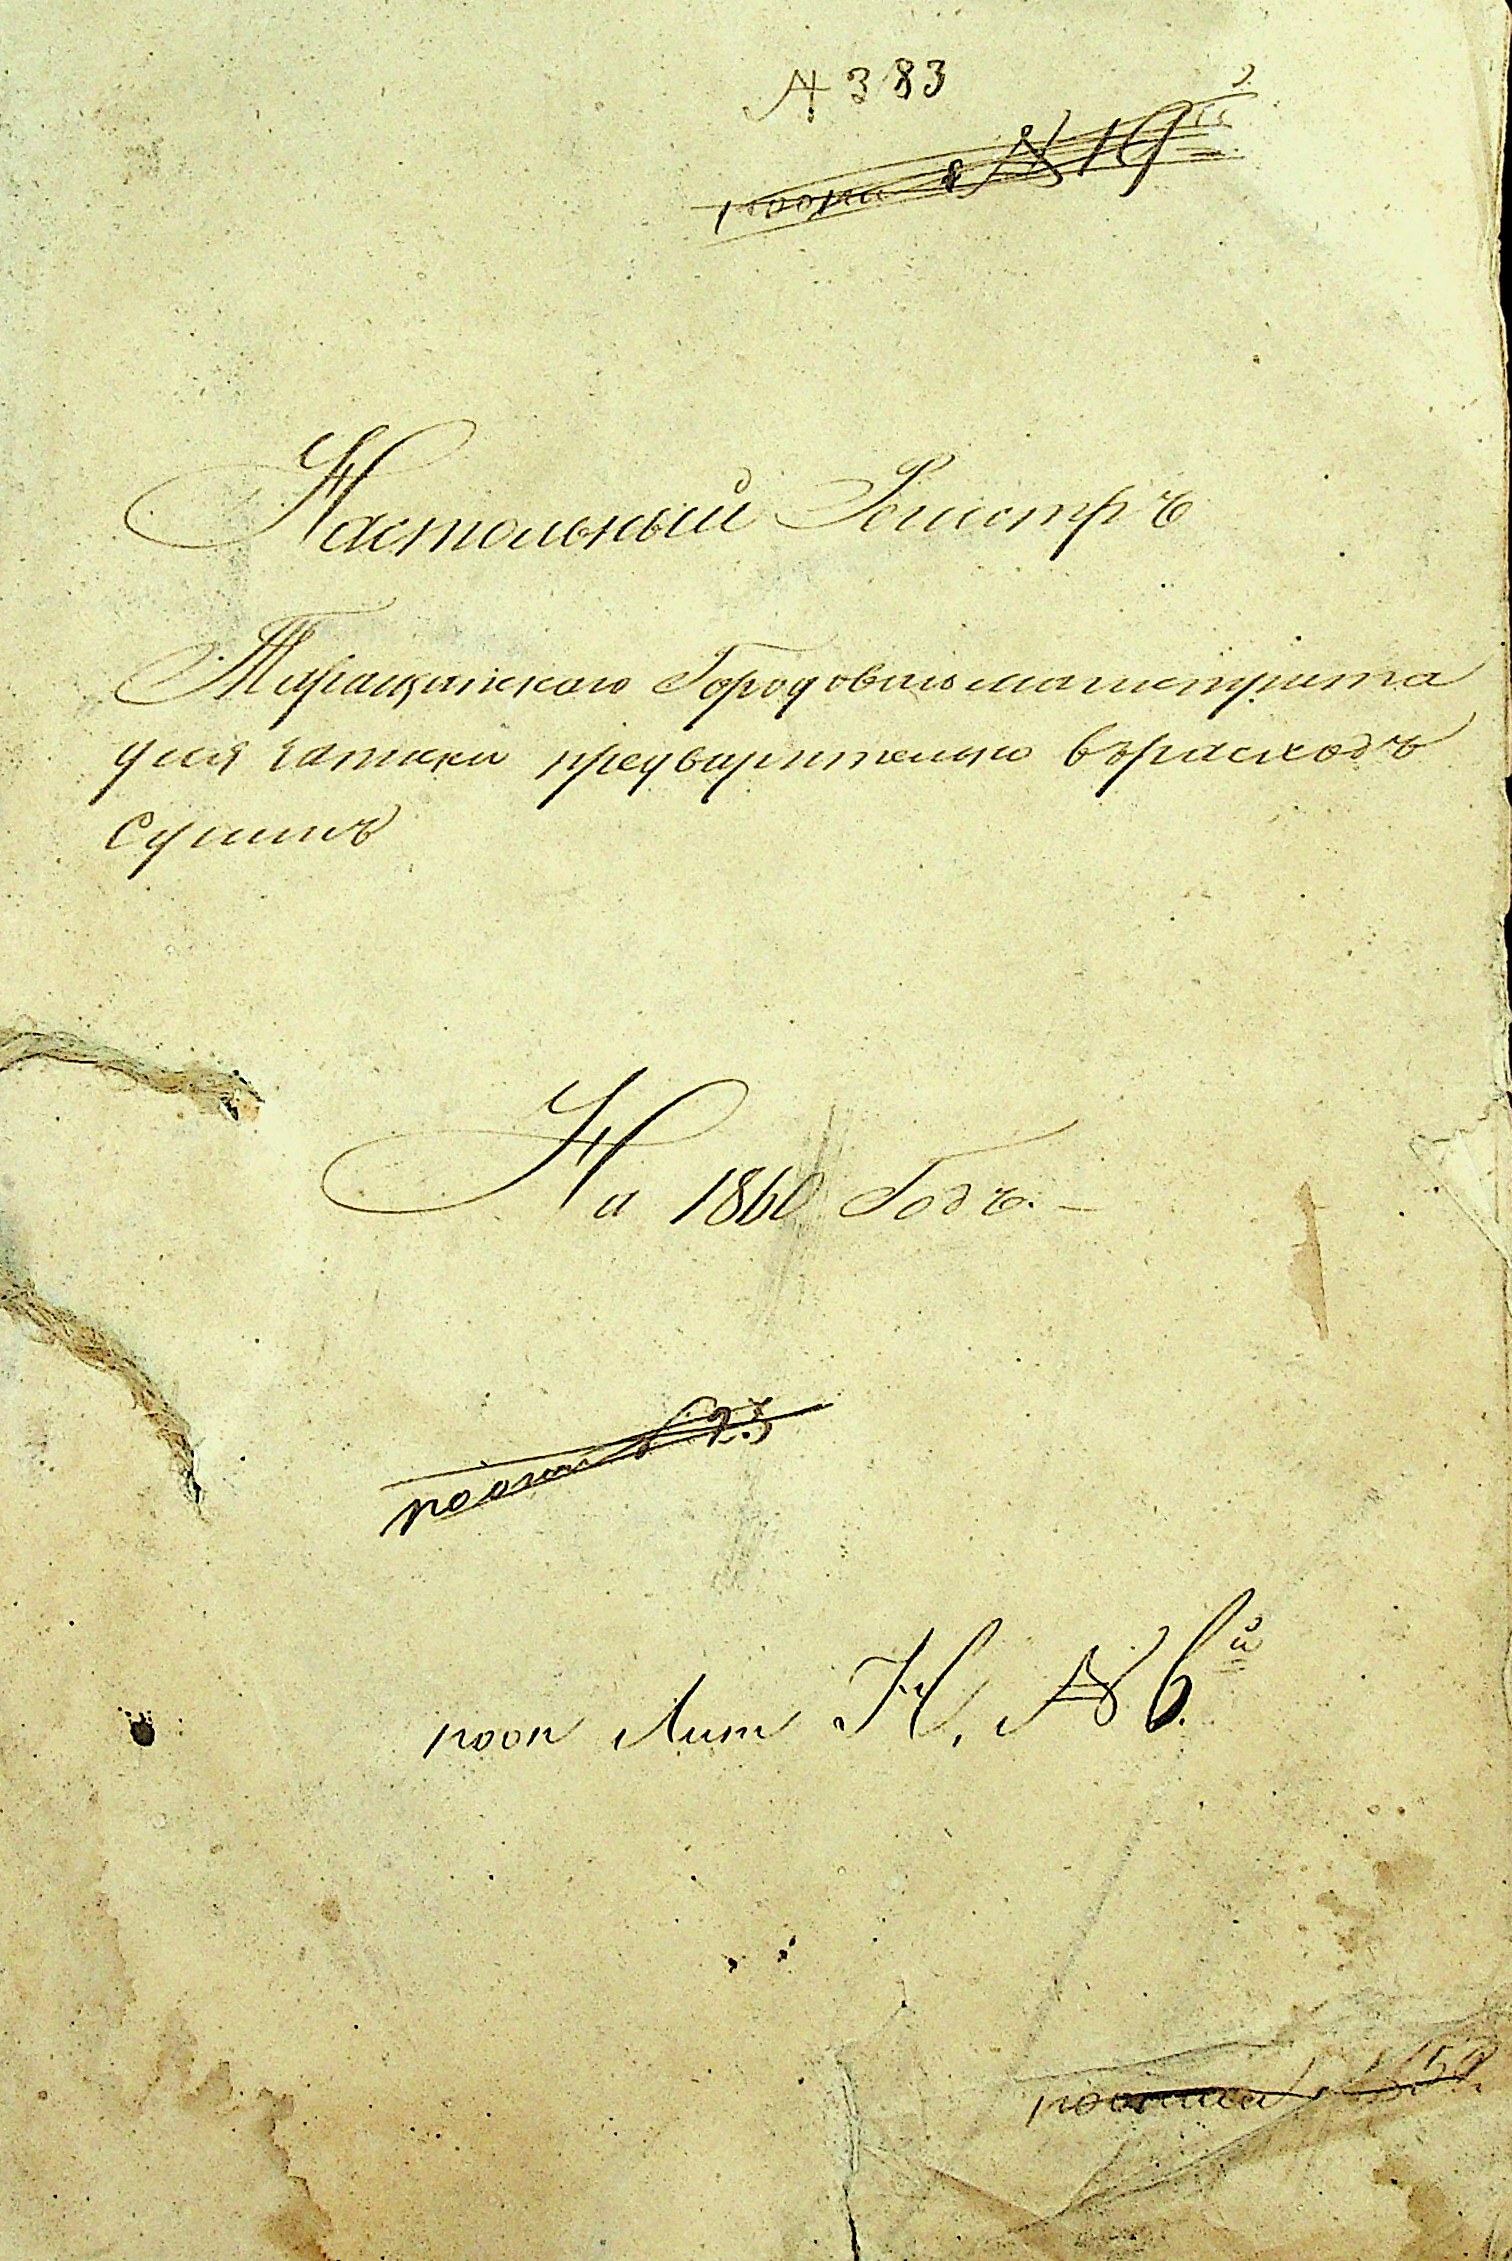 № 383
по опи № 19й
Настольный Реистръ
Таращанскаго Городоваго магистрата
для записки предварительно въ расходъ
суммъ
На 1860 Годъ. —
по опи № 23
по оп Лит Н, № 6й
по описи № 59